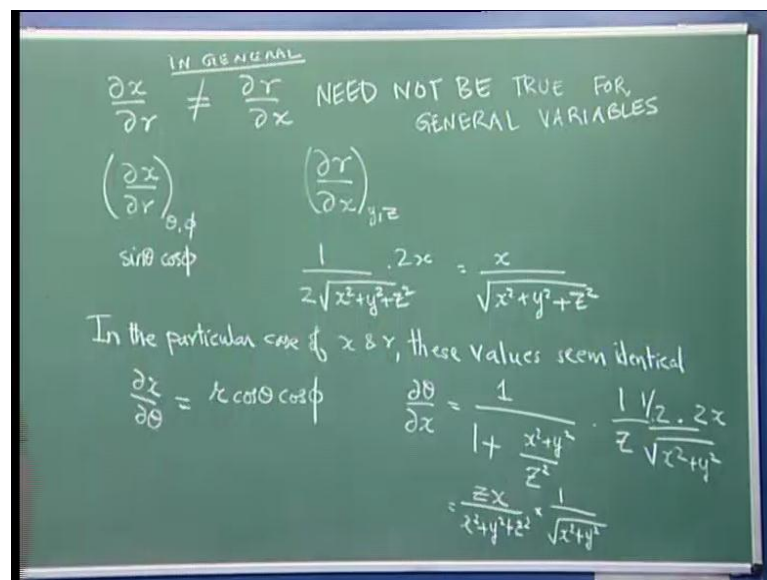 IN GENERAL
∂x/∂r ≠ ∂r/∂x NEED NOT BE TRUE FOR
GENERAL VARIABLES
(∂x/∂r)θ,φ (∂r/∂x)y,z
sinθ cosφ 1/(2√(x²+y²+z²)) . 2x = x/√(x²+y²+z²)
In the particular case of x & r, these values seem identical
∂x/∂θ = r cosθ cosφ ∂θ/∂x = 1/(1 + (x²+y²)/z²) . 1/z (1/2 . 2x)/√(x²+y²)
= zx/(x²+y²+z²) × 1/√(x²+y²)